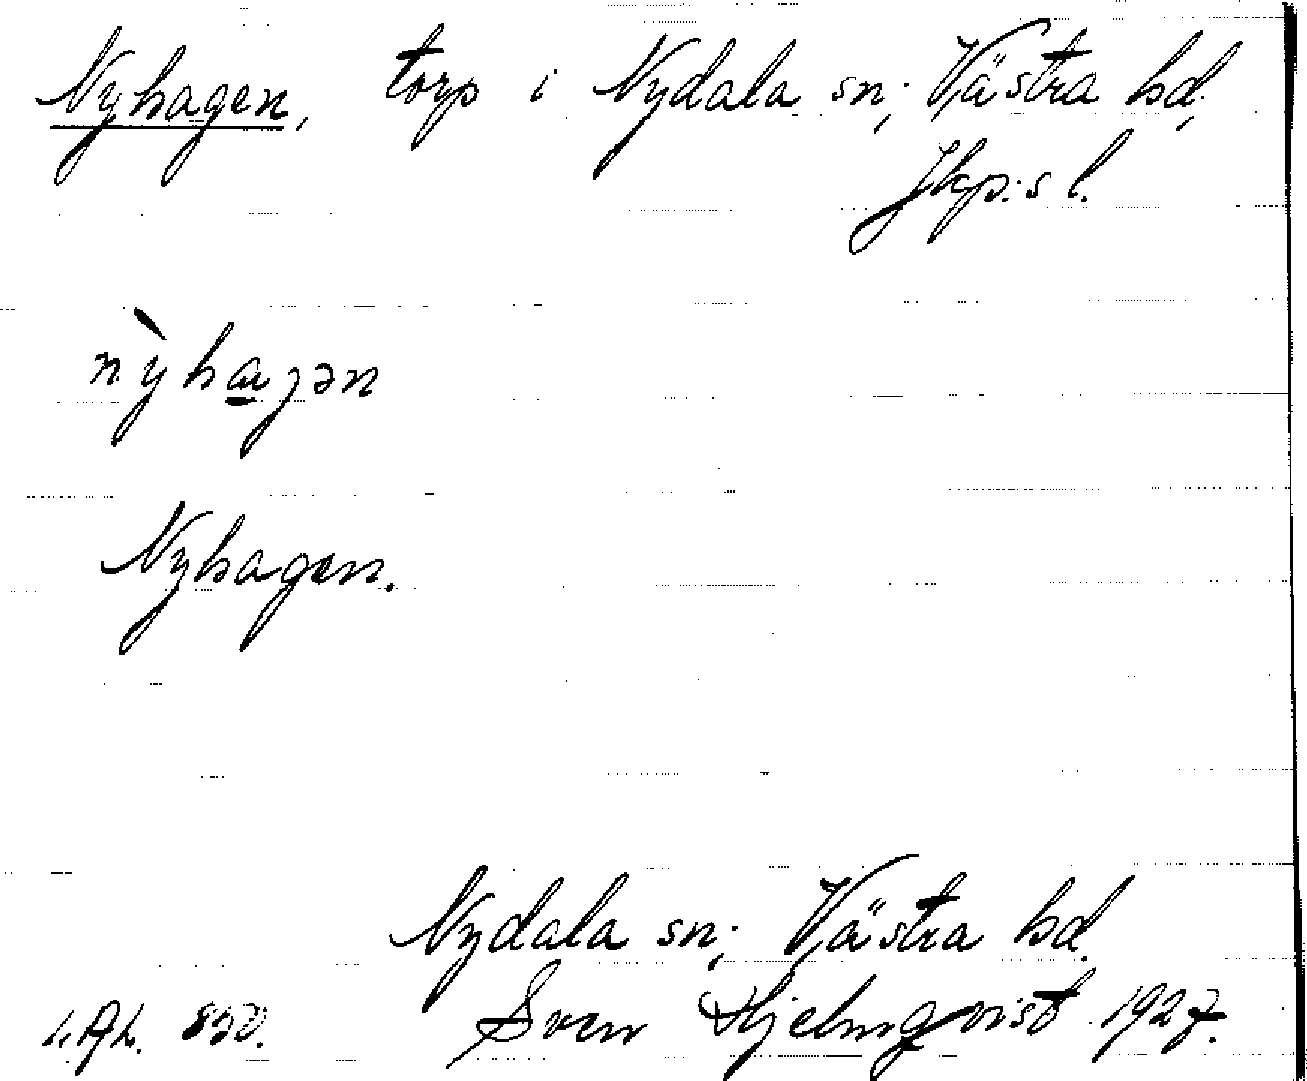 Nyhagen, torp i Nydala sn; Västra hd,
Jkp:s l.
nỳhagən
Nyhagen.
Nydala sn; Västra hd.
Sven Hjelmqvist 1927.